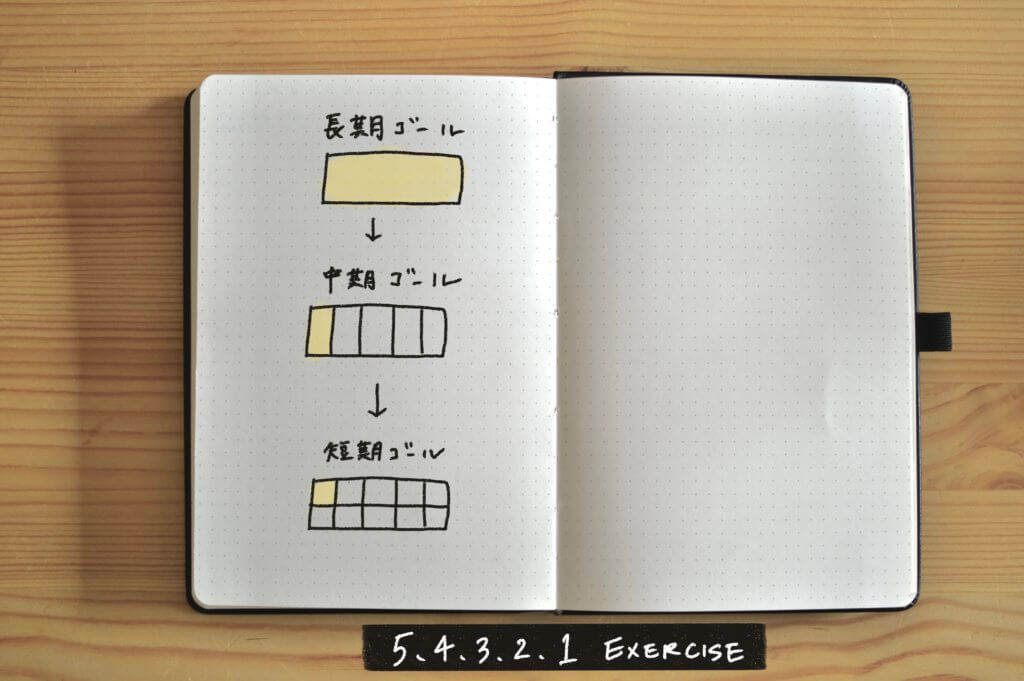 長期ゴール
中期ゴール
短期ゴール
5.4.3.2.1 EXERCISE